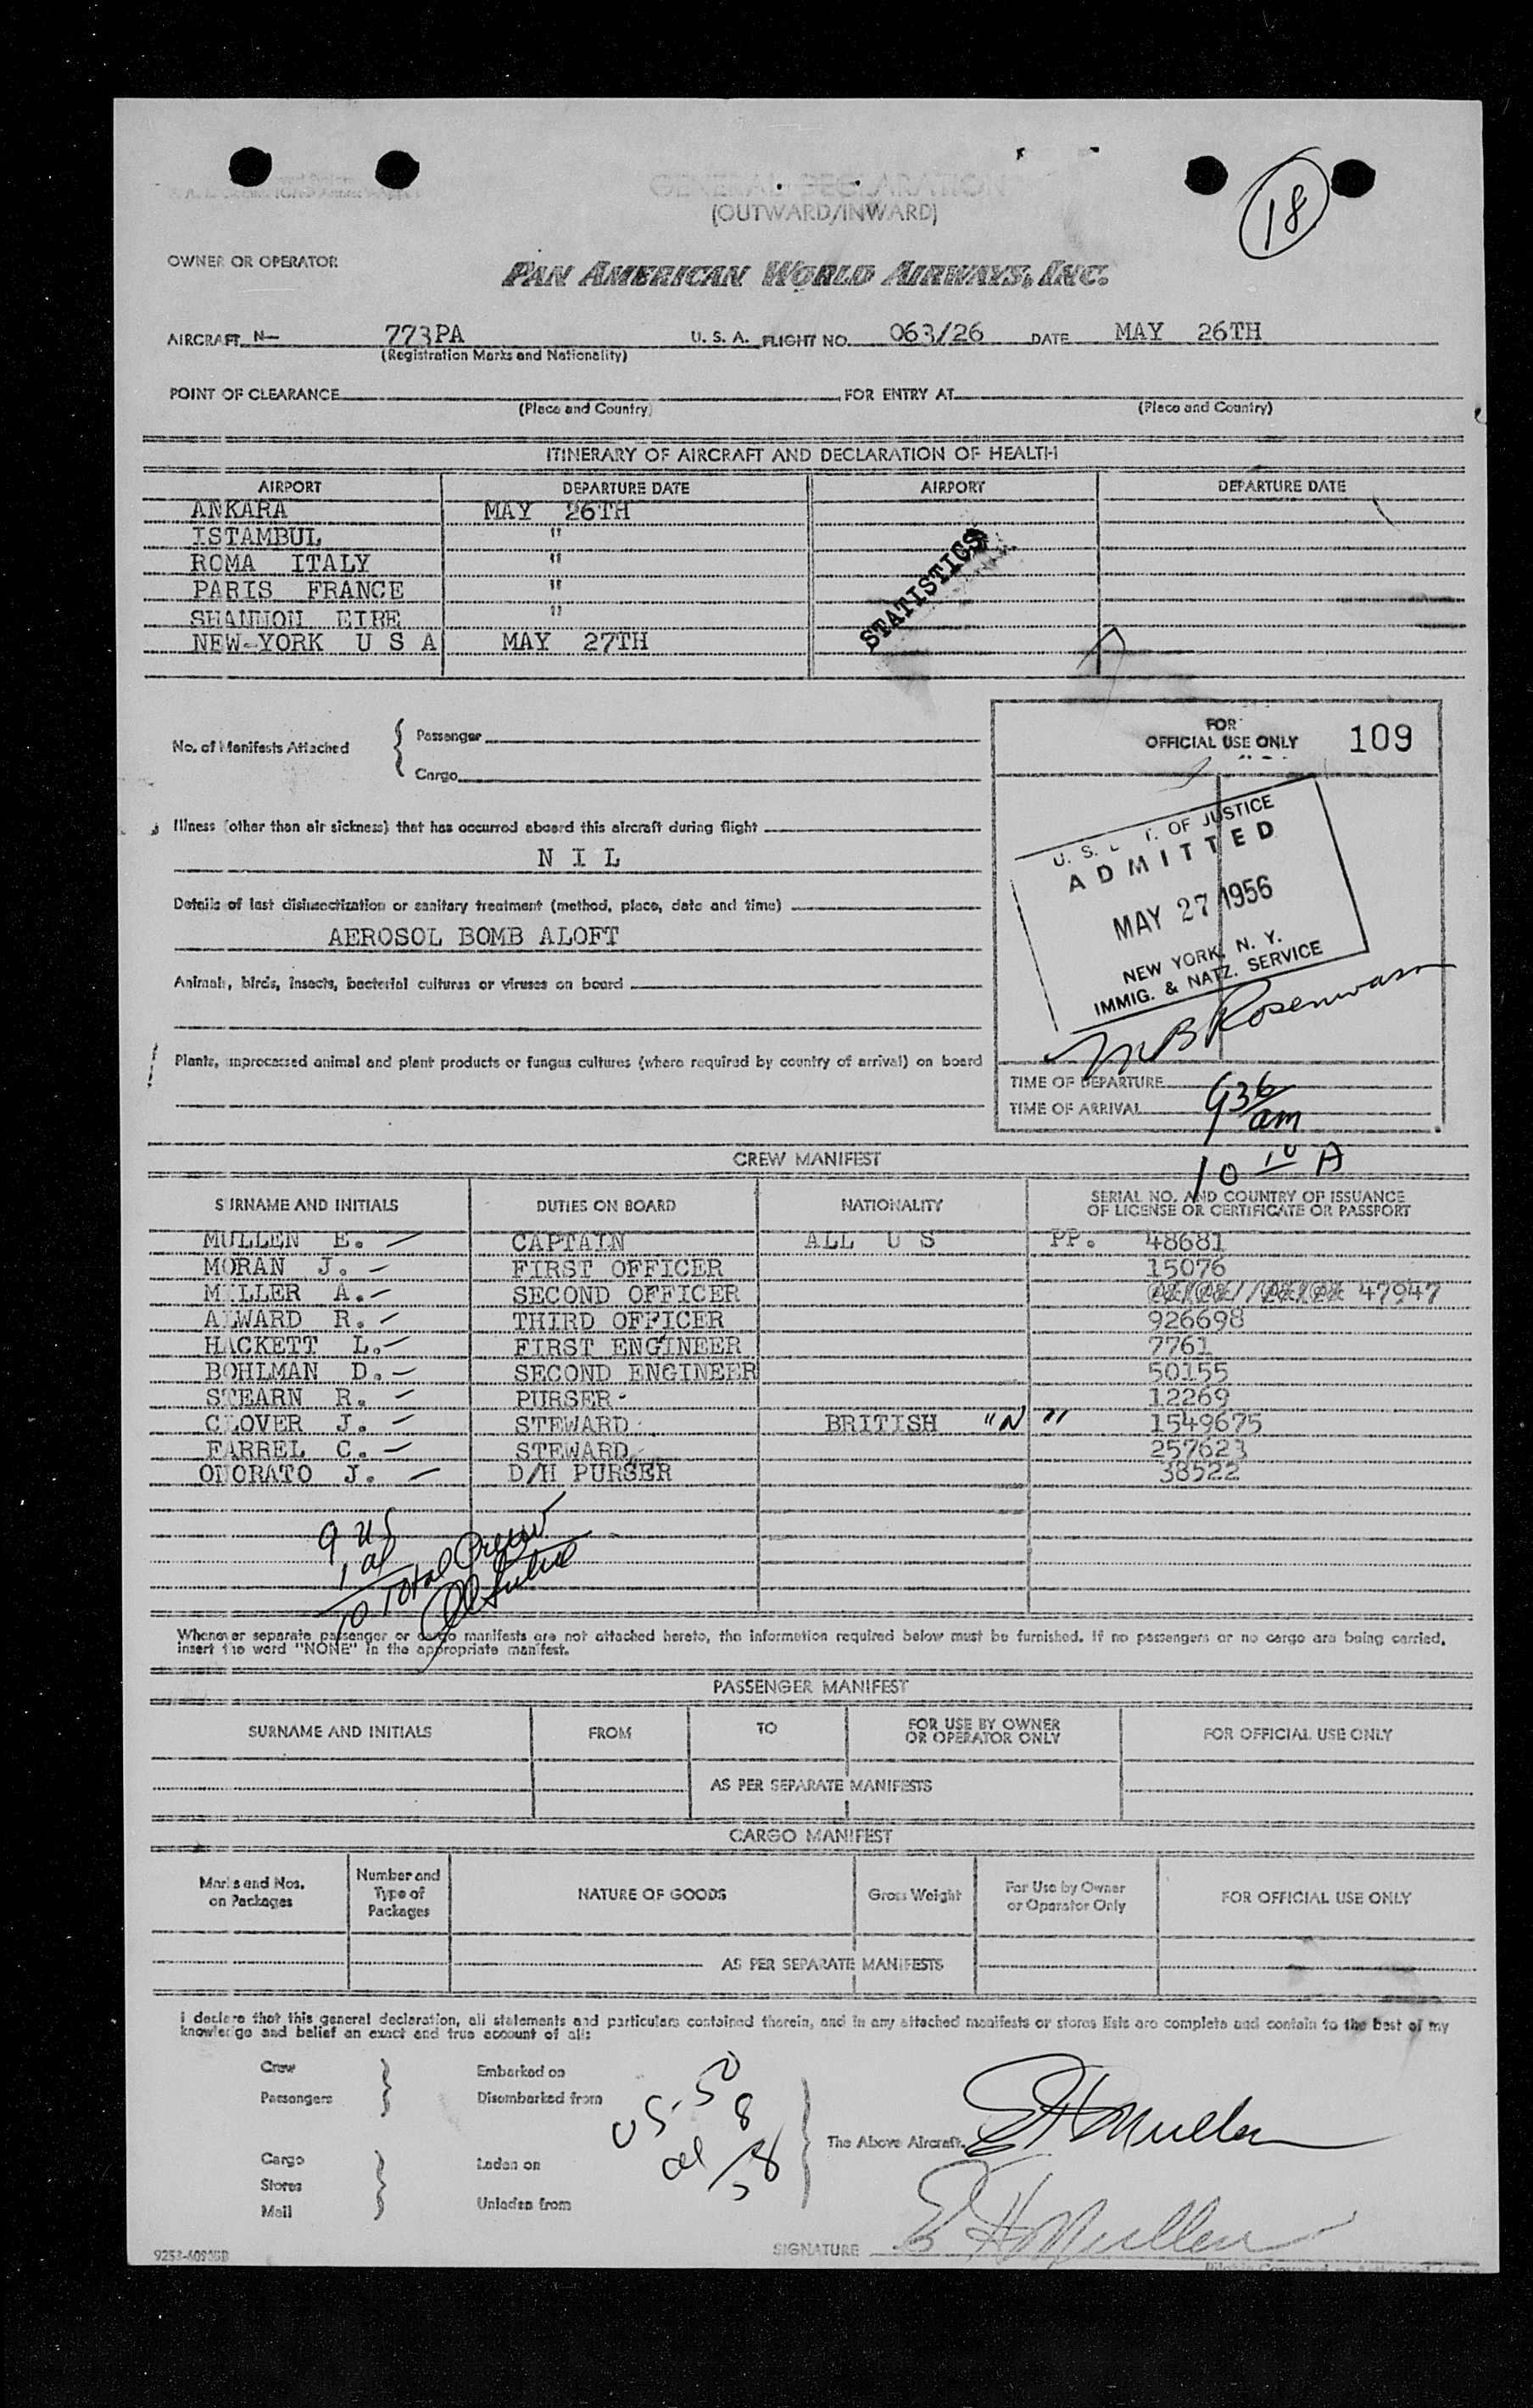 18
GENERAL DECLARATION
(OUTWARD/INWARD)
OWNER OR OPERATOR
PAN AMERICAN WORLD AIRWAYS, INC.
AIRCRAFT N- 773PA U. S. A. FLIGHT NO. 063/26 DATE MAY 26TH
(Registration Marks and Nationality)
POINT OF CLEARANCE FOR ENTRY AT
(Place and Country) (Place and Country)
ITINERARY OF AIRCRAFT AND DECLARATION OF HEALTH
AIRPORT DEPARTURE DATE AIRPORT DEPARTURE DATE
ANKARA MAY 26TH
ISTAMBUL "
ROMA ITALY "
PARIS FRANCE "
SHANNON EIRE "
NEW-YORK U S A MAY 27TH
STATISTICS
No. of Manifests Attached { Passenger
Cargo
FOR
OFFICIAL USE ONLY 109
Illness (other than air sickness) that has occurred aboard this aircraft during flight
N I L
Details of last disinsectization or sanitary treatment (method, place, date and time)
AEROSOL BOMB ALOFT
Animals, birds, insects, bacterial cultures or viruses on board
Plants, unprocessed animal and plant products or fungus cultures (where required by country of arrival) on board
U. S. T. OF JUSTICE
ADMITTED
MAY 27 1956
NEW YORK, N. Y.
IMMIG. & NATZ. SERVICE
TIME OF DEPARTURE
TIME OF ARRIVAL 936 am
10 10 A
CREW MANIFEST
SURNAME AND INITIALS DUTIES ON BOARD NATIONALITY SERIAL NO. AND COUNTRY OF ISSUANCE
OF LICENSE OR CERTIFICATE OR PASSPORT
MULLEN E. CAPTAIN ALL U S PP. 48681
MORAN J. FIRST OFFICER 15076
MILLER A. SECOND OFFICER 47947
ALWARD R. THIRD OFFICER 926698
HACKETT L. FIRST ENGINEER 7761
BOHLMAN D. SECOND ENGINEER 50155
STEARN R. PURSER 12269
CLOVER J. STEWARD BRITISH "N" 1549675
FARREL C. STEWARD 257623
ONORATO J. D/H PURSER 38522
9 US
1 al
10 Total Crew
Whenever separate passenger or cargo manifests are not attached hereto, the information required below must be furnished. If no passengers or no cargo are being carried,
insert the word "NONE" in the appropriate manifest.
PASSENGER MANIFEST
SURNAME AND INITIALS FROM TO FOR USE BY OWNER
OR OPERATOR ONLY FOR OFFICIAL USE ONLY
AS PER SEPARATE MANIFESTS
CARGO MANIFEST
Marks and Nos.
on Packages Number and
Type of
Packages NATURE OF GOODS Gross Weight For Use by Owner
or Operator Only FOR OFFICIAL USE ONLY
AS PER SEPARATE MANIFESTS
I declare that this general declaration, all statements and particulars contained therein, and in any attached manifests or stores lists are complete and contain to the best of my
knowledge and belief an exact and true account of all:
Crew Embarked on
Passengers Disembarked from
US. 50
al 8
58
The Above Aircraft. EHMullen
Cargo Laden on
Stores
Mail Unladen from
SIGNATURE EHMullen